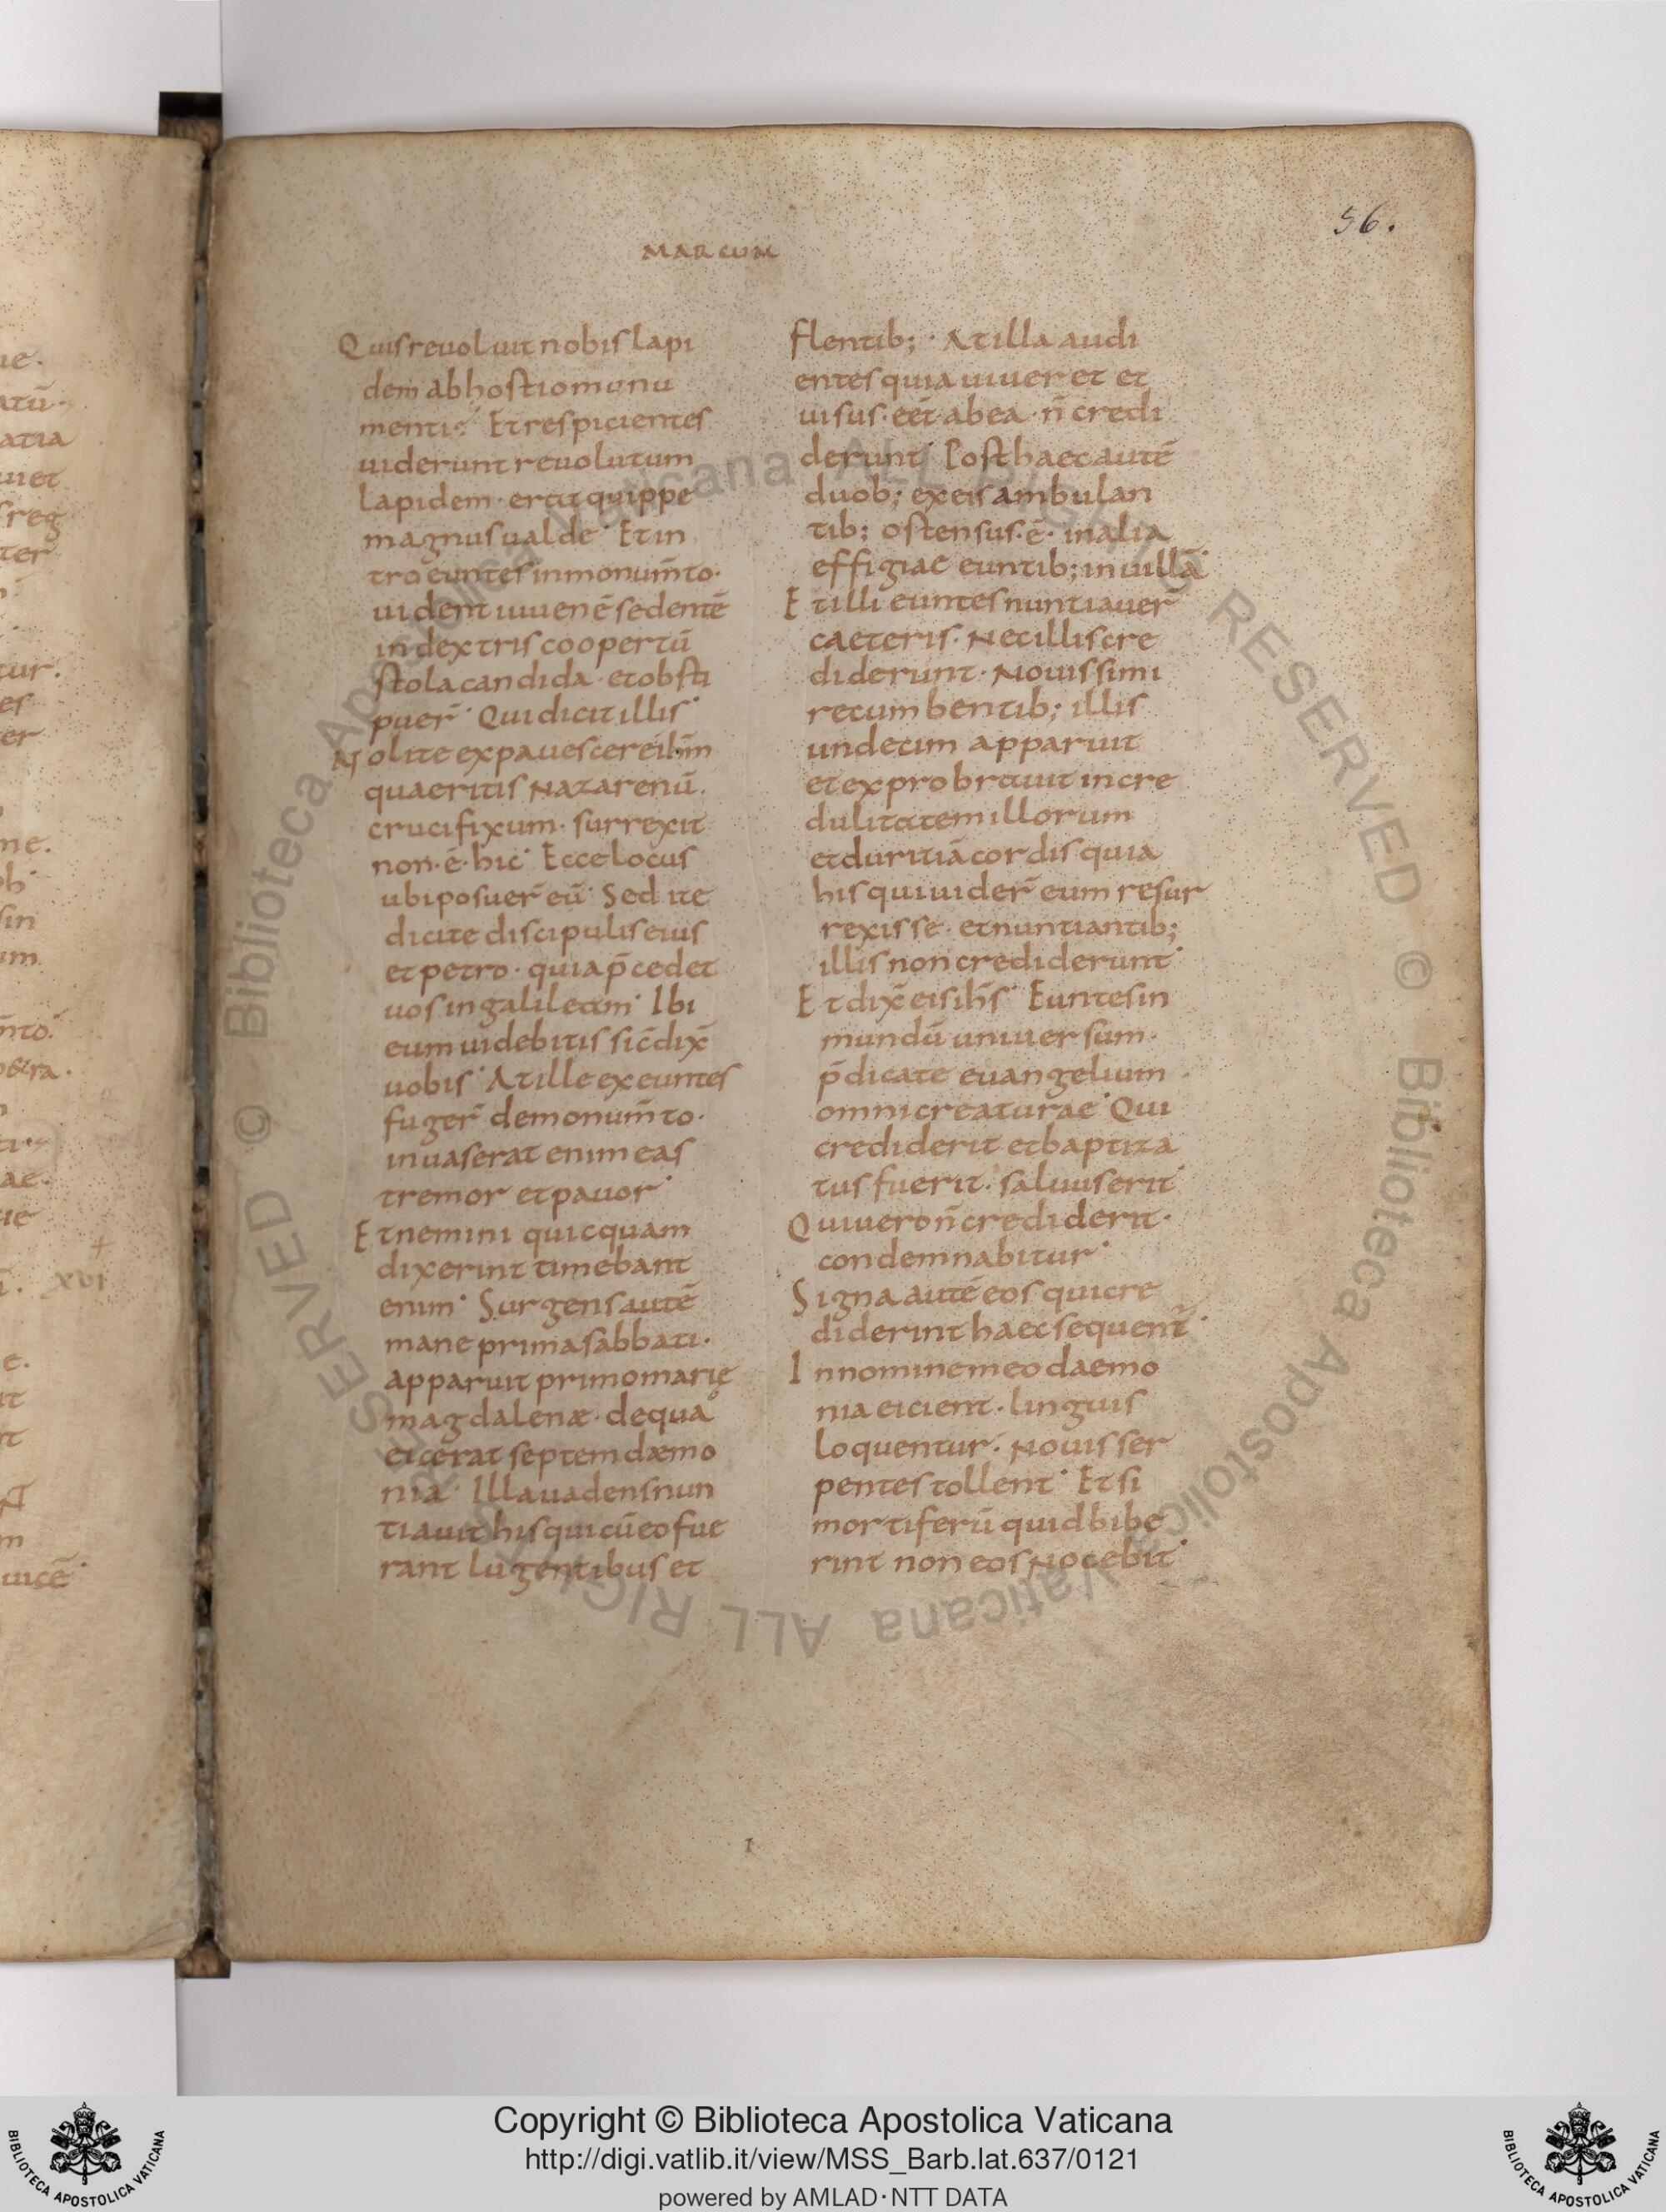 MARCUM
56.
Quis reuoluit nobis lapi
dem ab hostio monu
menti? Et respicientes
uiderunt reuolutum
lapidem· erat quippe
magnus ualde· Et in
tro euntes in monum̄to·
uident iuuenē sedentē
in dextris coopertū
stola candida· et obsti
puer̄· Qui dicit illis·
Nolite expauescere ih̄m
quaeritis Nazarenū·
crucifixum· surrexit
non·ē·hic· Ecce locus
ubi posuer̄ eū· Sed ite
dicite discipulis eius
et petro· quia p̄cedet
uos in galileam· Ibi
eum uidebitis sic̄ dix̄
uobis· At ille exeuntes
fuger̄ de monum̄to·
inuaserat enim eas
tremor et pauor·
Et nemini quicquam
dixerint timebant
enim· Surgens autē
mane prima sabbati·
apparuit primo marię
magdalenæ· de qua
eicerat septem dæmo
nia· Illa uadens nun
tiauit his qui cū eo fue
rant lugentibus et
flentib;· At illa audi
entes quia uiueret et
uisus·eēt·ab ea·n̄ credi
derunt· Post haec autē
duob; ex eis ambulan
tib; ostensus·ē· in alia
effigiae euntib; in uillā·
Et illi euntes nuntiauer̄
caeteris· Nec illis cre
diderunt· Nouissimi
recumbentib; illis
undecim apparuit
et exprobrauit incre
dulitatem illorum
et duritiā cordis quia
his qui uider̄ eum resur
rexisse· et nuntiantib;
illis non crediderunt·
Et dix̄ eis ih̄s· Euntes in
mundū uniuersum·
p̄dicate euangelium
omni creaturae· Qui
crediderit et baptiza
tus fuerit· saluus erit·
Qui uero n̄ crediderit·
condemnabitur·
Signa autē eos qui cre
diderint haec sequent̄·
In nomine meo daemo
nia eicient· linguis
loquentur· Nouis ser
pentes tollent· Et si
mortiferū quid bibe
rint non eos Nocebit·
xvi
Copyright © Biblioteca Apostolica Vaticana
http://digi.vatlib.it/view/MSS_Barb.lat.637/0121
powered by AMLAD·NTT DATA
BIBLIOTECA APOSTOLICA VATICANA
BIBLIOTECA APOSTOLICA VATICANA
© Biblioteca Apostolica Vaticana ALL RIGHTS RESERVED © Biblioteca Apostolica Vaticana ALL RIGHTS RESERVED